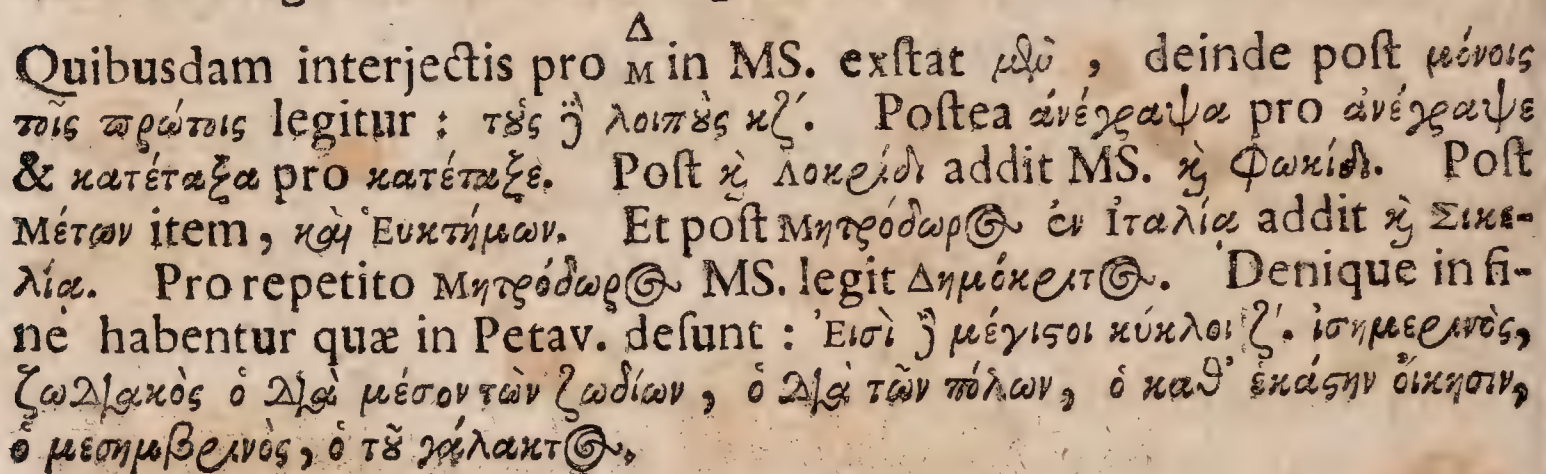 Quibusdam interjectis pro M̊Δ in MS. exſtat μδὺ, deinde poſt μόνοις
τοῖς πρώτοις legitur : τȣ̀ς ἢ λοιπȣ̀ς κζʹ. Poſtea ἀνέγραψα pro ἀνέγραψε
& κατέταξα pro κατέταξε. Poſt ϗ̀ Λοκρίδι addit MS. ϗ̀ Φωκίδι. Poſt
Μέτων item, καὶ Ἐυκτήμων. Et poſt Μητρόδωρος ἐν Ἰταλίᾳ addit ϗ̀ Σικε-
λίᾳ. Pro repetito Μητρόδωρος MS. legit Δημόκριτος. Denique in fi-
ne habentur quæ in Petav. deſunt : Ἐισὶ δ̓ μέγιϛοι κύκλοι ζʹ. ἰσημερινὸς,
ζωδιακὸς ὁ διὰ μέσον τῶν ζωδίων, ὁ διὰ τῶν πόλων, ὁ καθ' ἑκάϛην ὄικησιν,
ὁ μεσημβρινὸς, ὁ τȣ̃ γάλακτος.